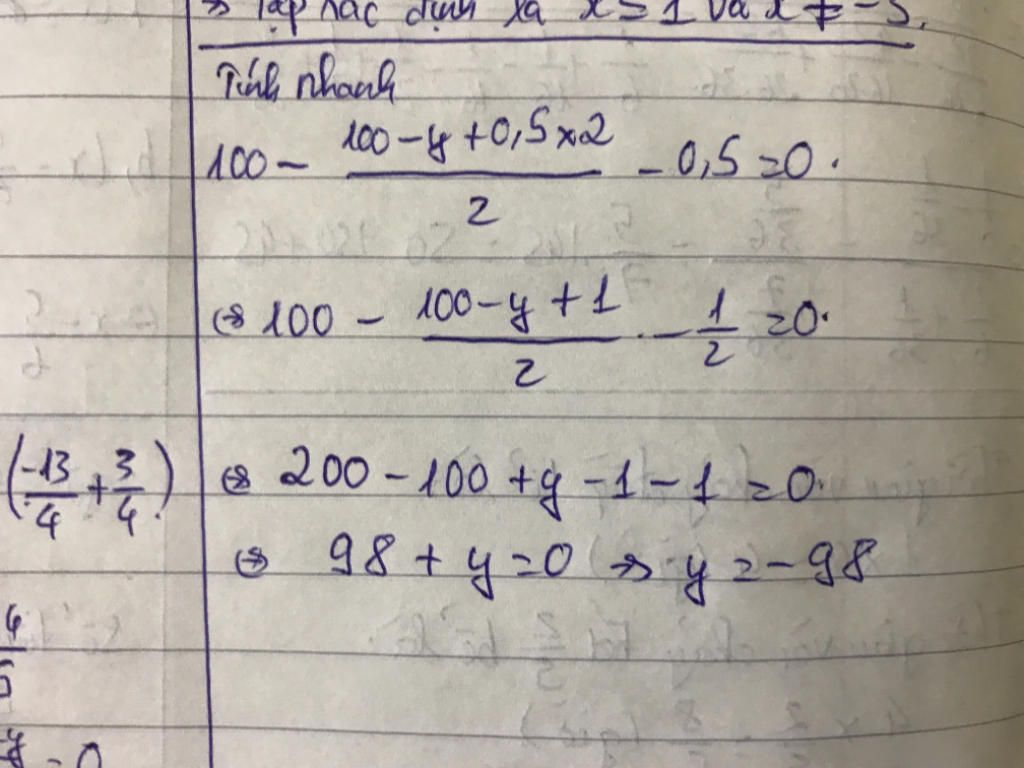 => Tập xác định là x ≥ 1 và x ≠ -5.
Tính nhanh
100 - \frac{100 - y + 0,5 x 2}{2} - 0,5 = 0.
<=> 100 - \frac{100 - y + 1}{2} - \frac{1}{2} = 0.
<=> 200 - 100 + y - 1 - 1 = 0.
<=> 98 + y = 0 => y = -98
(\frac{-13}{4} + \frac{3}{4})